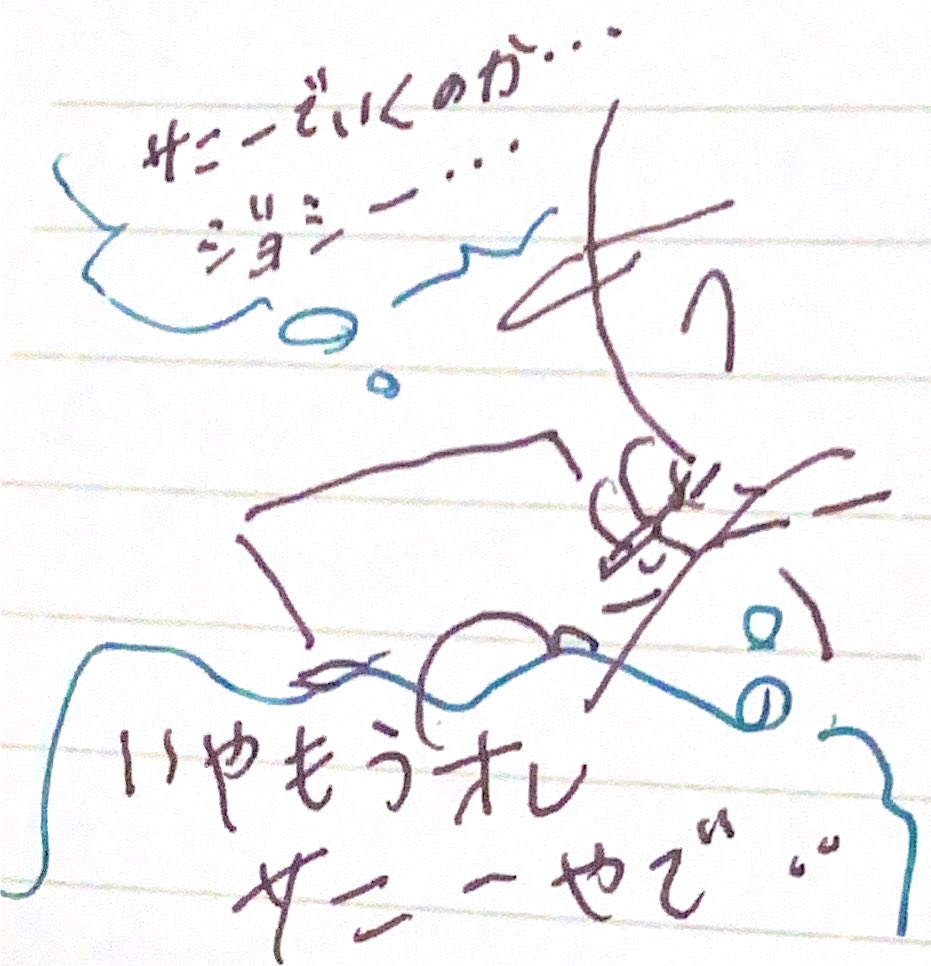 サニーでいくのか…
ジョニー…
いやもうオレ
サニーやで…